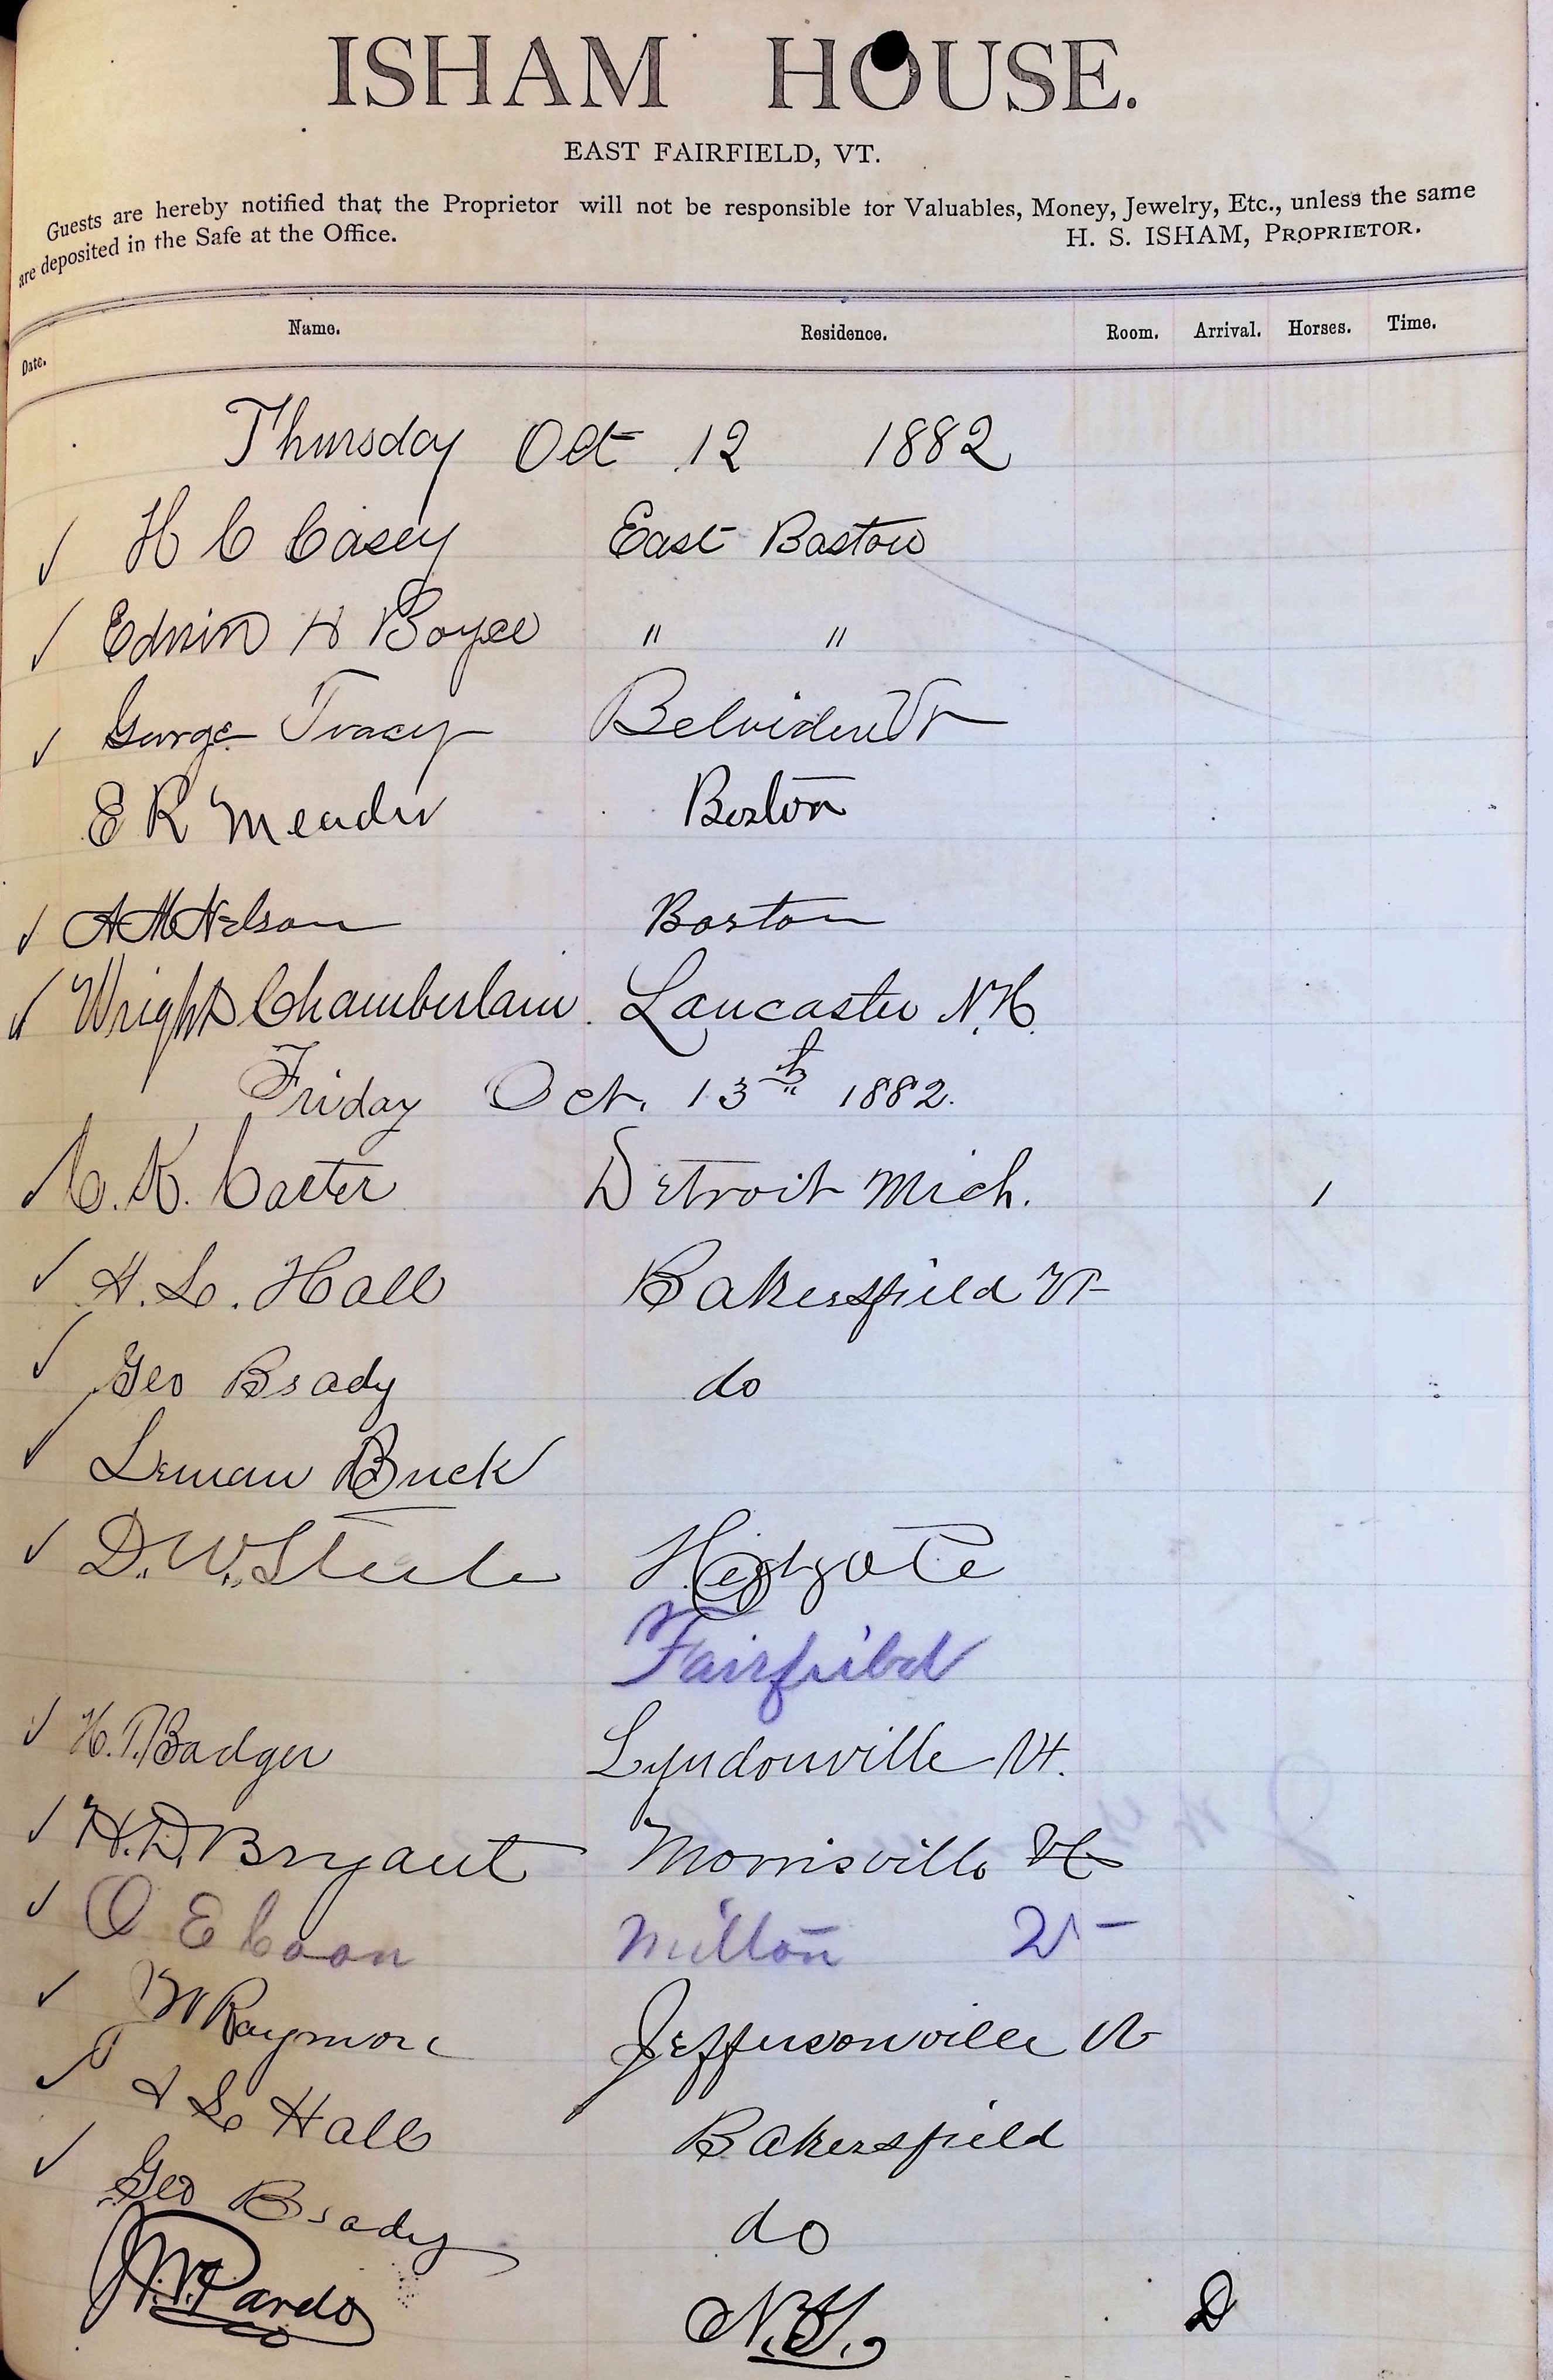 ISHAM HOUSE.
EAST FAIRFIELD, VT.
Guests are hereby notified that the Proprietor will not be responsible for Valuables, Money, Jewelry, Etc., unless the same
are deposited in the Safe at the Office. H. S. ISHAM, PROPRIETOR.
Date. Name. Residence. Room. Arrival. Horses. Time.
Thursday Oct 12 1882
✓ H C Casey East Boston
✓ Edwin H Boyce " "
✓ George Tracy Belvidere Vt
E R Meader Boston
✓ A M Nelson Boston
✓ Wright Chamberlain. Lancaster N.H.
Friday Oct. 13th 1882.
✓ C. K. Carter Detroit Mich. 1
✓ H. L. Hall Bakersfield Vt
✓ Geo Brady do
✓ Leman Buck
✓ D. W. Steele Highgate
Fairfield
✓ H. T. Badger Lyndonville Vt.
✓ H. D. Bryant Morrisville Vt
✓ O E Coon Milton Vt
✓ Raymore Jeffersonville Vt
✓ H L Hall Bakersfield
✓ Geo Brady do
Pardo N.Y. D